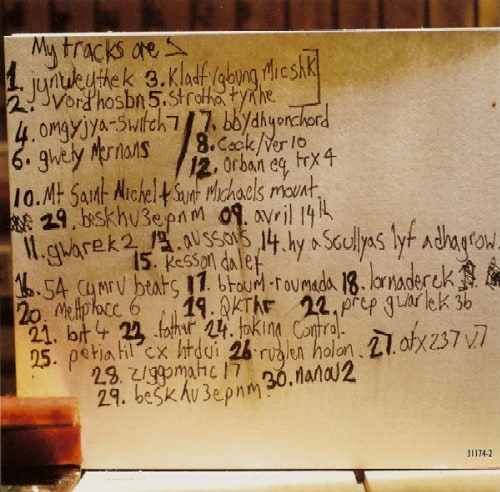 My tracks are >
1. junweythek 3. Kladfvgbung Micshk
2. vordhosbn 5. strotha tynhe
4. omgyjya-Switch 7 / 7. bbydhyonchord
6. gwety Mernans 8. Cock/ver10
12. Orban eq trx 4
10. Mt Saint Michel + Saint Michaels mount.
29. beskhu3epnm 09. avril 14th
11. gwarek 2 13. aussois 14. hy a Scullyas lyf adhagrow.
15. Kesson dalef
16. 54 cymru beats 17. btoum-roumada 18. lornaderek
20. meltphace 6 19. QKThr 22. prep gwarlek 3b
21. bit 4 23. father 24. taking Control.
25. petiatil cx htdui 26. ruglen holon. 27. afx237 v7
28. ziggomatic 17 30. Nanou2
29. beskhu3epnm.
31174-2